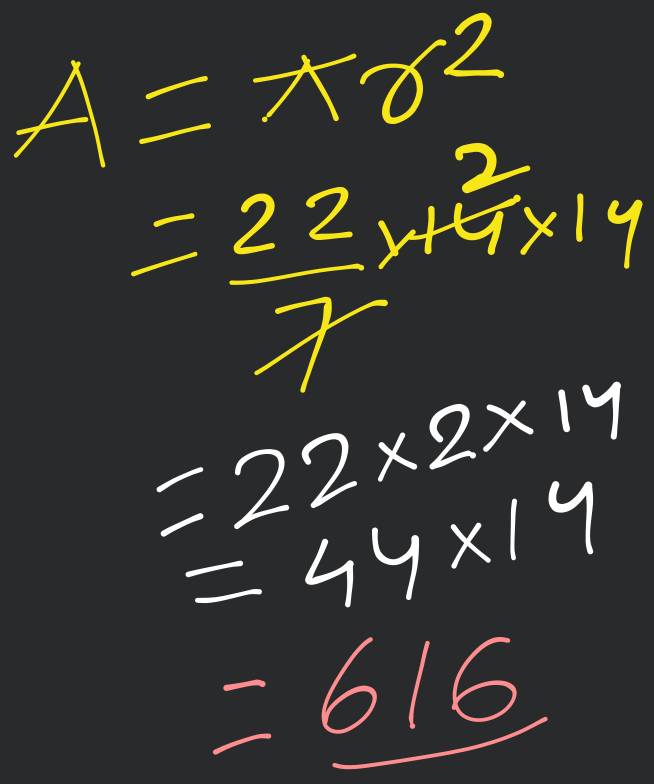 A = πr²
= 22/7 × 14 2 × 14
= 22 × 2 × 14
= 44 × 14
= 616